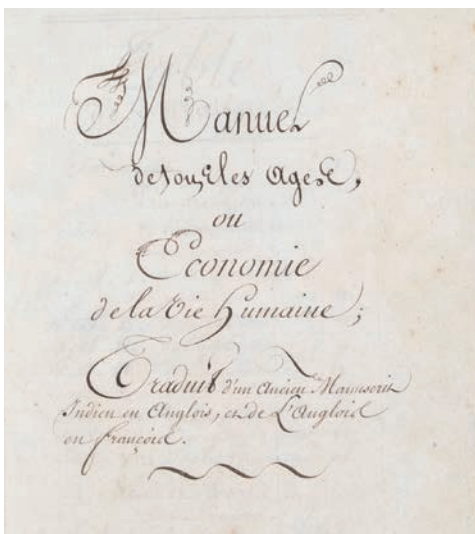 Manuel
de tous les Ages,
ou
Economie
de la Vie humaine;
Traduit d'un Ancien Manuscrit
Indien en Anglois, et de L'Anglois
en françois.